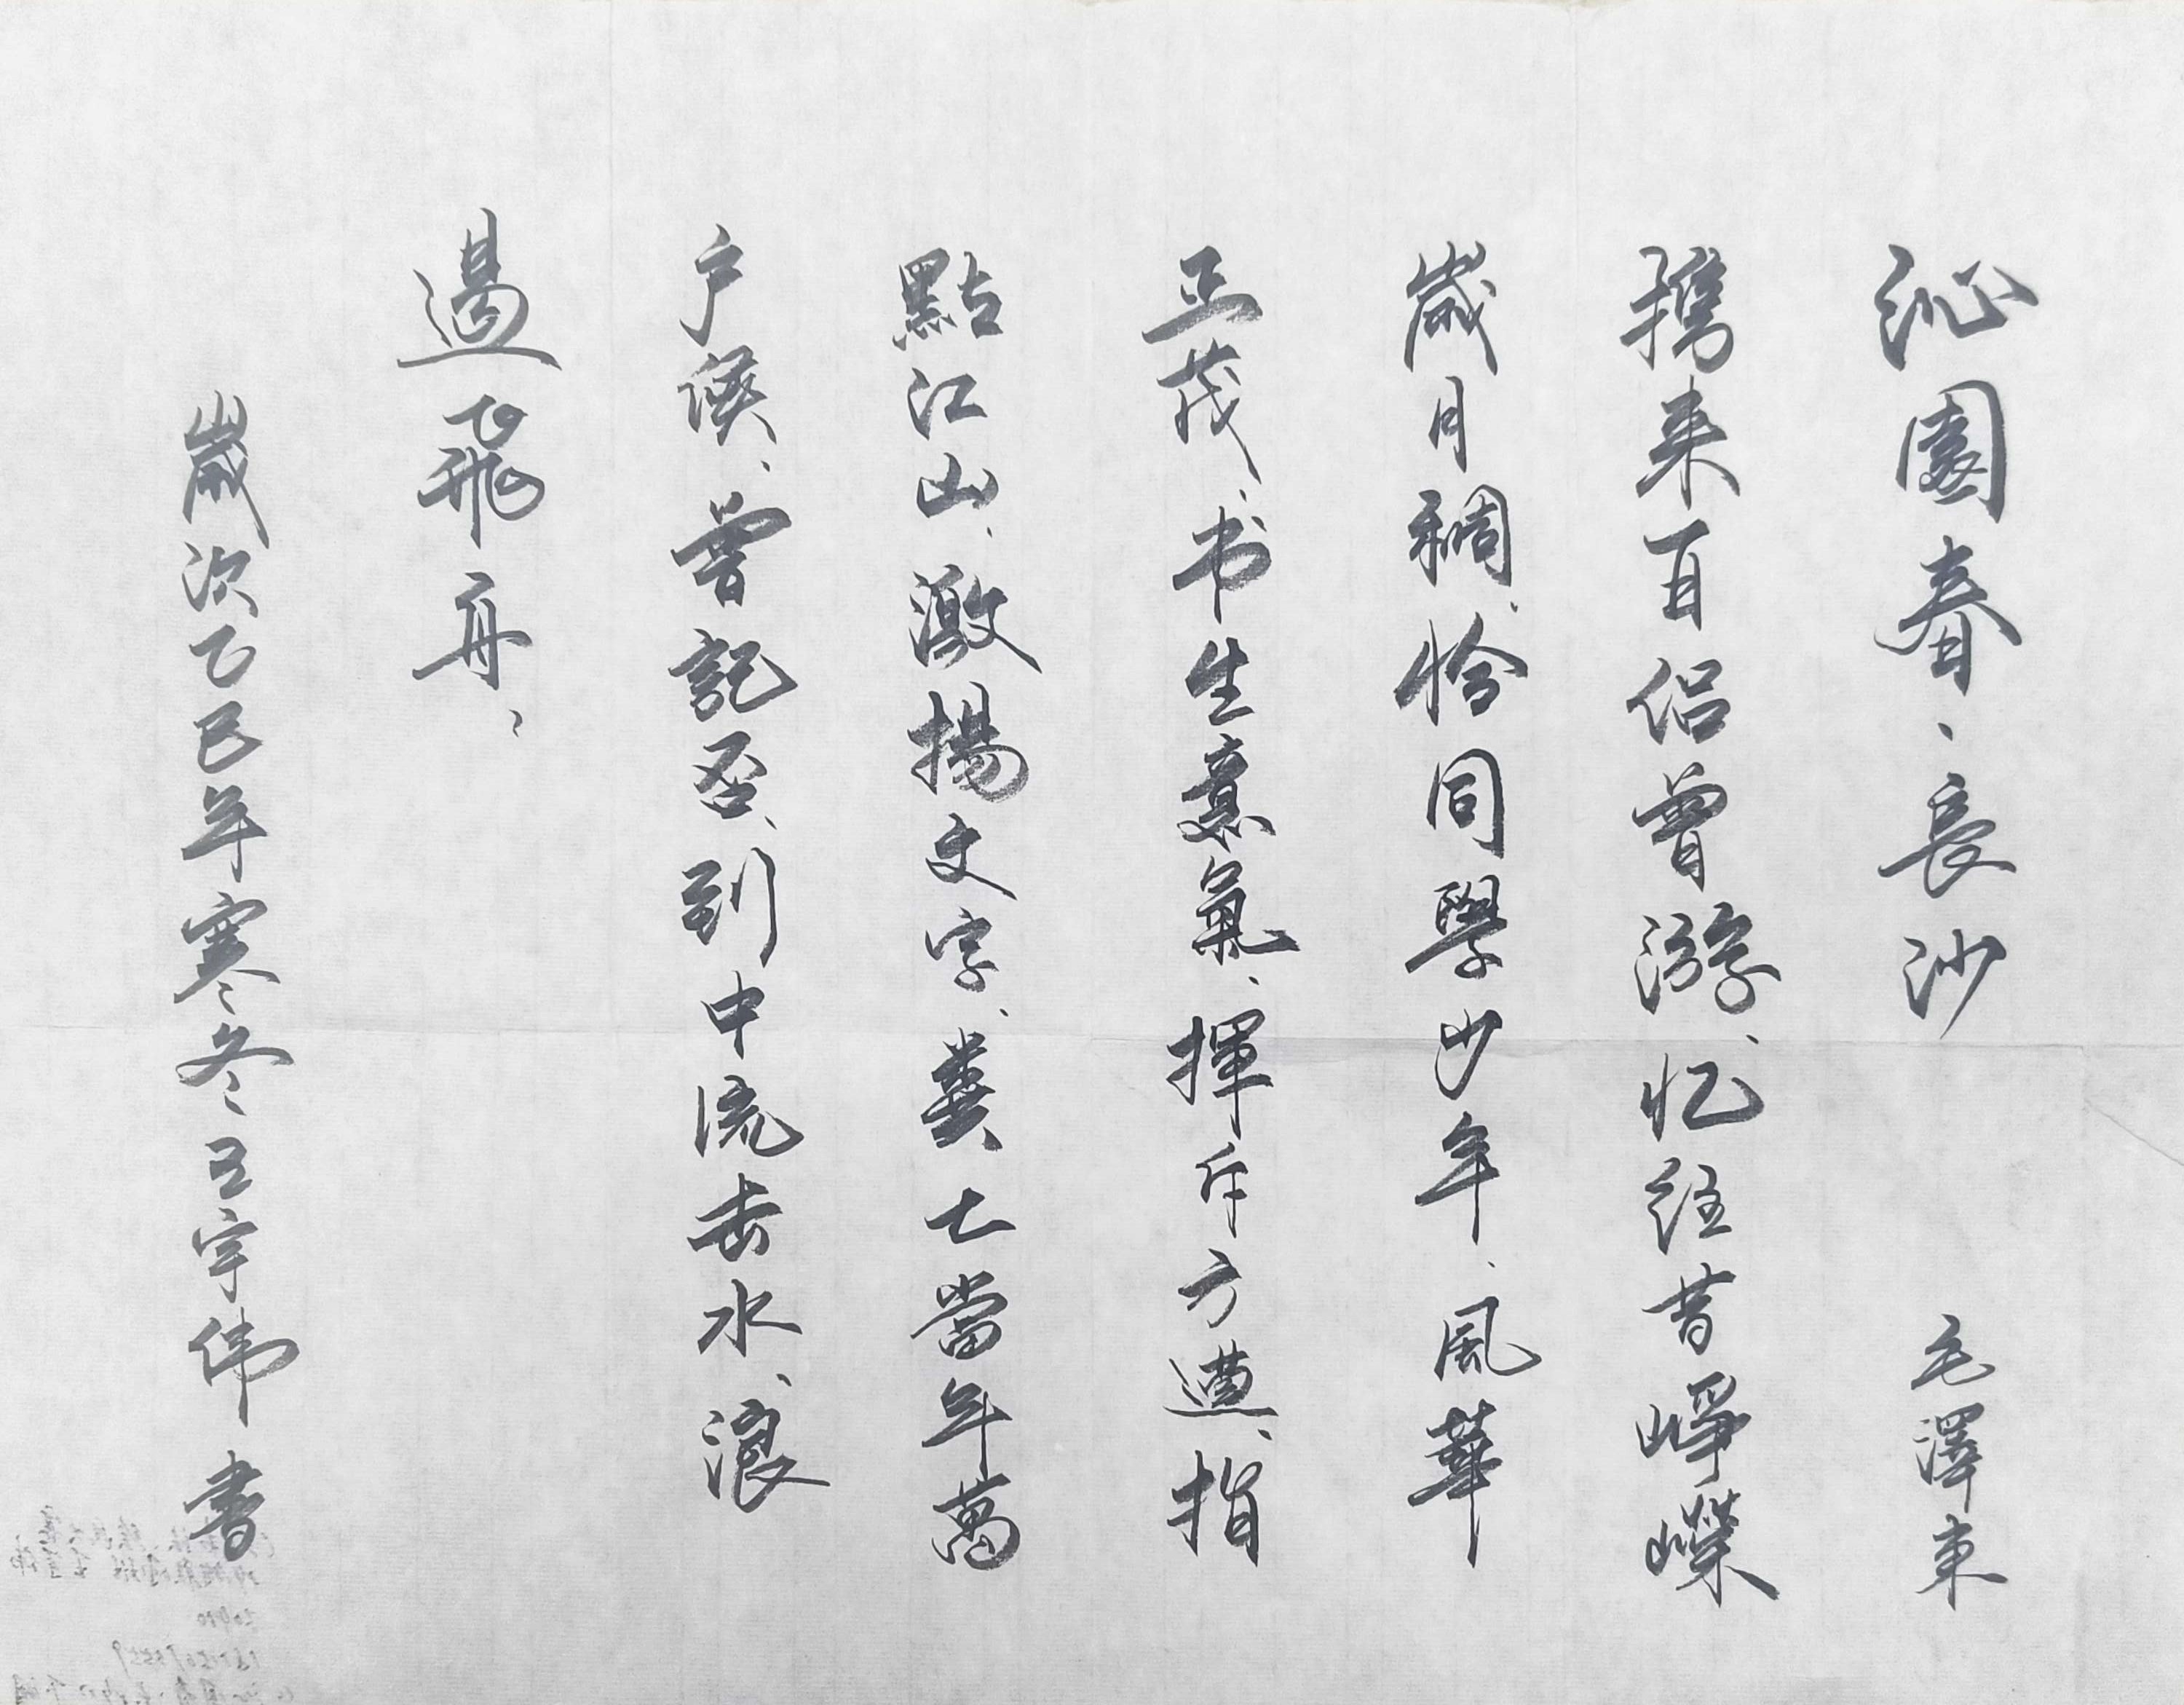 沁園春、長沙 毛澤東
携来百侣曾游、忆往昔峥嵘
歲月稠、恰同學少年、風華
正茂、书生意氣、揮斥方遒、指
點江山、激揚文字、糞土當年萬
户侯、曾記否、到中流击水、浪
遏飛舟、
歲次乙巳年寒冬王宇伟書